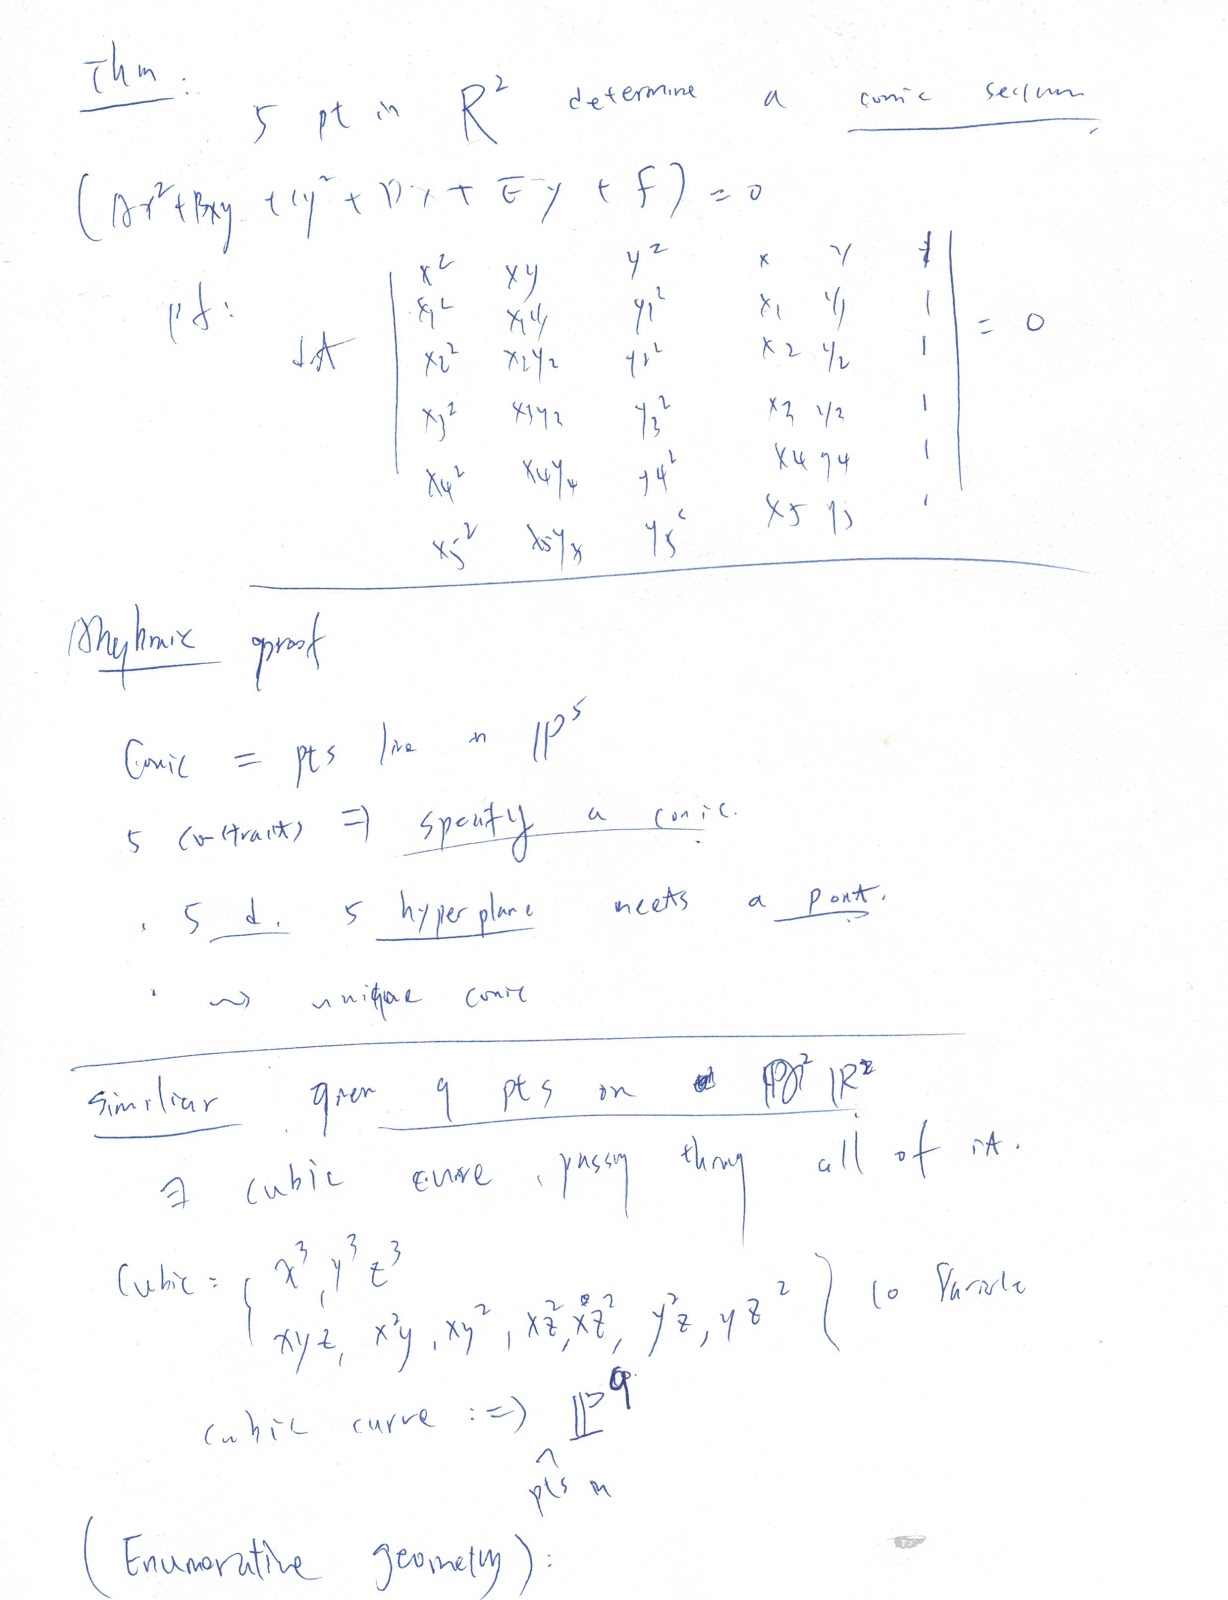 Thm:
5 pt in R² determine a conic section
(Ax²+Bxy + Cy² + Dx + Ey + F) = 0
pf:
x² xy y² x y 1
x₁² x₁y₁ y₁² x₁ y₁ 1
det x₂² x₂y₂ y₂² x₂ y₂ 1 = 0
x₃² x₃y₃ y₃² x₃ y₃ 1
x₄² x₄y₄ y₄² x₄ y₄ 1
x₅² x₅y₅ y₅² x₅ y₅ 1
proof
Conic = pts live in ℙ⁵
5 constraits ⇒ specify a conic.
. 5 d. 5 hyperplane meets a point.
. ⇝ unique conic
Similiar given 9 pts on ℝ²
∃ cubic curve, passing throug all of it.
Cubic = { x³, y³ z³
xyz, x²y, xy², xz², xz², y²z, yz² } 10
cubic curve :⇒ ℙ⁹
↑
pts in
(Enumerative geometry):